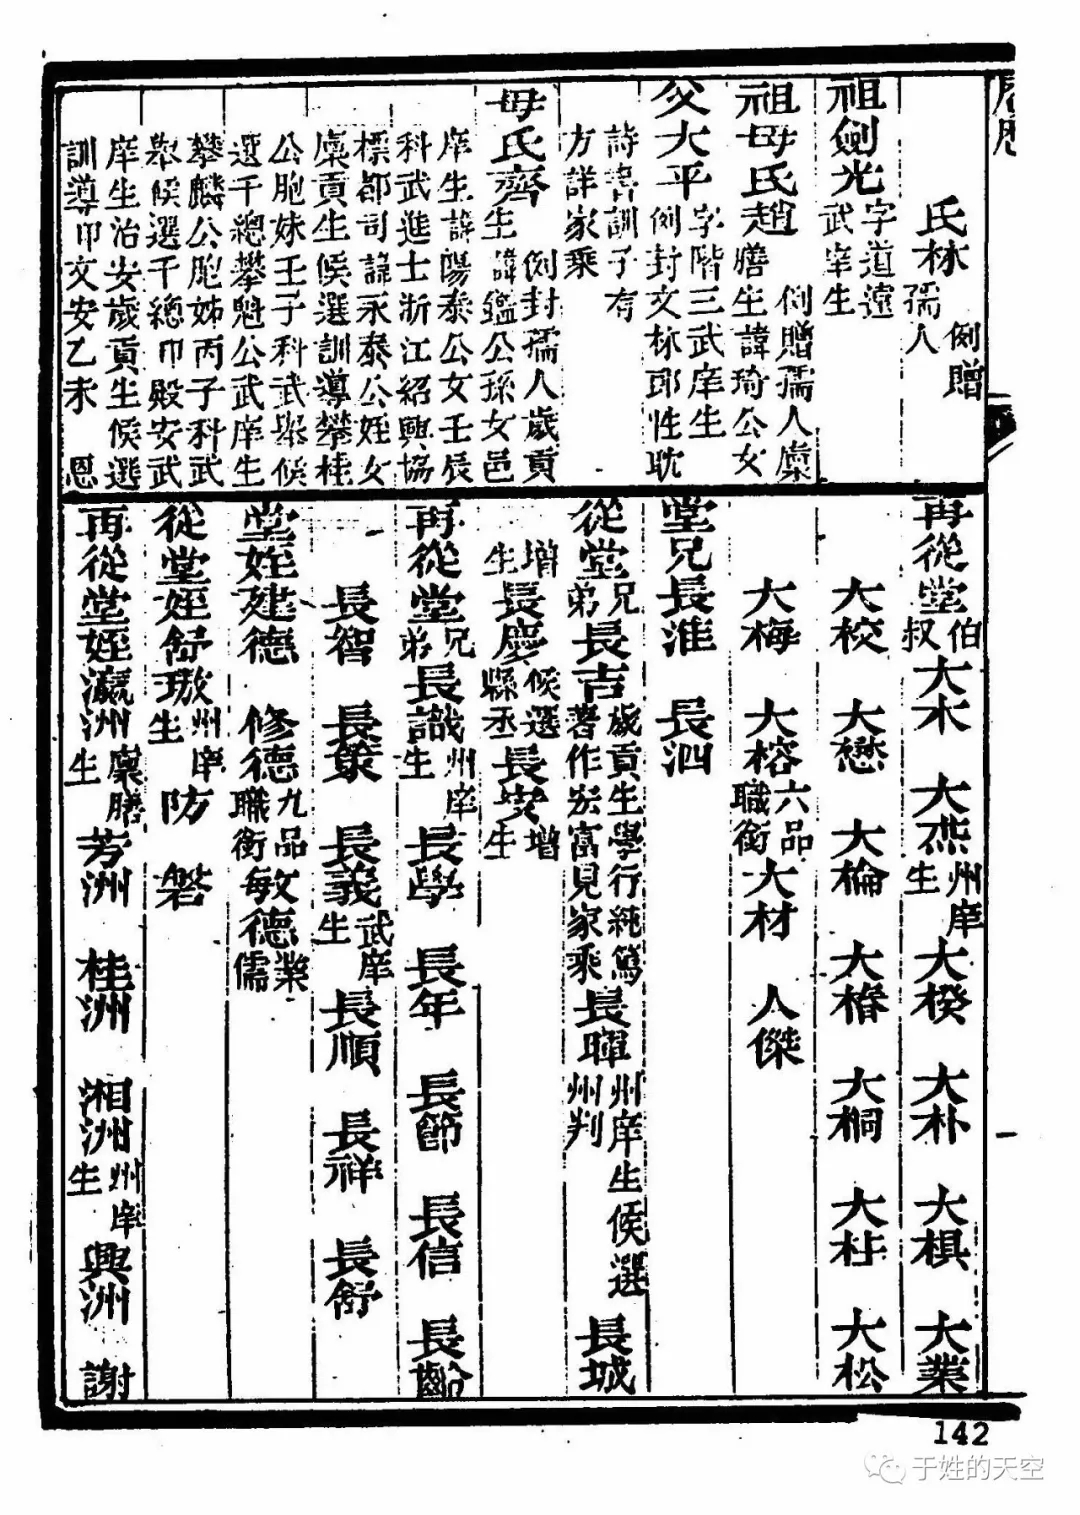 氏林 例贈孺人
祖劍光 字道遠武庠生
祖母氏趙 例贈孺人廩膳生諱琦公女
父大平 字階三武庠生例封文林郎性耽
詩書訓子有方詳家乘
母氏齊 例封孺人歲貢生諱鑑公孫女邑
庠生諱陽泰公女壬辰科武進士浙江紹興協
標都司諱永泰公姪女廩貢生候選訓導攀桂
公胞妹壬子科武舉候選千總攀魁公武庠生
攀麟公胞姊丙子科武舉候選千總印殿安武
庠生治安歲貢生候選訓導印文安乙未 恩
再從堂伯叔大木 大杰州庠生 大楑 大朴 大椇 大業
大校 大懋 大棆 大椿 大桐 大杜 大松
大梅 大榕六品職銜 大材 人傑
堂兄長淮 長泗
從堂兄弟長吉歲貢生學行純篤著作宏富見家乘 長暉州庠生候選州判 長城
增生 長慶候選縣丞 長安增生
再從堂兄弟長識州庠生 長學 長年 長節 長信 長齡
長智 長策 長義武庠生 長順 長祥 長舒
堂姪建德 修德九品職銜 敏德業儒
從堂姪舒璈州庠生 防 磐
再從堂姪瀛洲廩膳生 芳洲 桂洲 湘洲州庠生 興洲 謝
142
于姓的天空